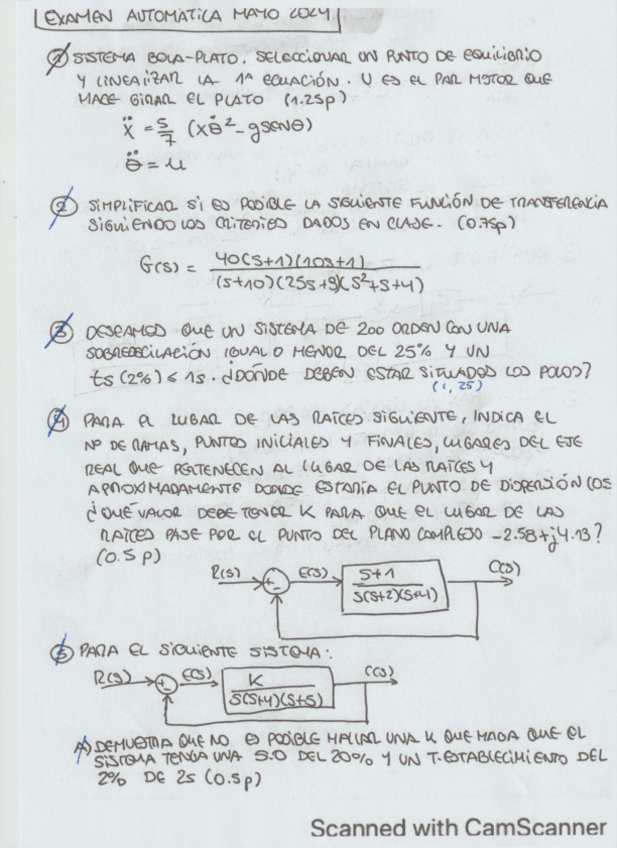 EXAMEN AUTOMÁTICA MAYO 2024
1 SISTEMA BOLA-PLATO. SELECCIONAR UN PUNTO DE EQUILIBRIO
Y LINEALIZAR LA 1ª ECUACIÓN. U ES EL PAR MOTOR QUE
HACE GIRAR EL PLATO (1.25p)
ẍ = 5/7 (xθ̇² - gsenθ)
θ̈ = u
2 SIMPLIFICAR SI ES POSIBLE LA SIGUIENTE FUNCIÓN DE TRANSFERENCIA
SIGUIENDO LOS CRITERIOS DADOS EN CLASE. (0.75p)
G(s) = 40(s+1)(10s+1) / (s+10)(25s+9)(s²+s+4)
3 DESEAMOS QUE UN SISTEMA DE 2DO ORDEN CON UNA
SOBREOSCILACIÓN IGUAL O MENOR DEL 25% Y UN
ts(2%) ≤ 1s. ¿DÓNDE DEBEN ESTAR SITUADOS LOS POLOS?
(1,25)
4 PARA EL LUGAR DE LAS RAÍCES SIGUIENTE, INDICA EL
Nº DE RAMAS, PUNTOS INICIALES Y FINALES, LUGARES DEL EJE
REAL QUE PERTENECEN AL LUGAR DE LAS RAÍCES Y
APROXIMADAMENTE DONDE ESTARÍA EL PUNTO DE DISPERSIÓN
¿QUÉ VALOR DEBE TENER K PARA QUE EL LUGAR DE LAS
RAÍCES PASE POR EL PUNTO DEL PLANO COMPLEJO -2.58+j4.13?
(0.5 p)
R(s) + - E(s) s+1 / s(s+2)(s+4) C(s)
5 PARA EL SIGUIENTE SISTEMA:
R(s) + - E(s) K / s(s+4)(s+5) C(s)
A) DEMUESTRA QUE NO ES POSIBLE HALLAR UNA K QUE HAGA QUE EL
SISTEMA TENGA UNA S.O DEL 20% Y UN T.ESTABLECIMIENTO DEL
2% DE 2s (0.5p)
Scanned with CamScanner